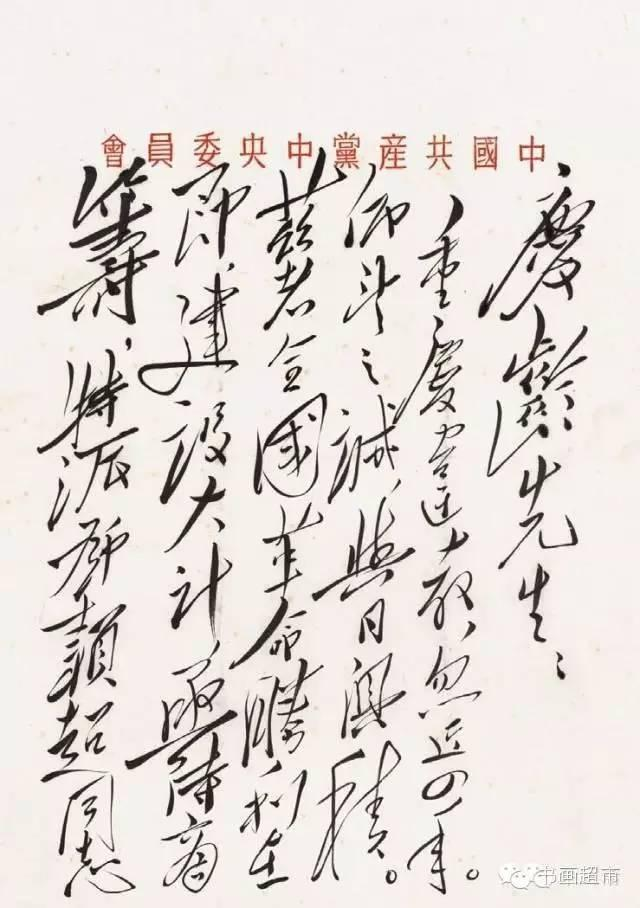 中國共産黨中央委員會
慶齡先生：
重慶違教，忽近四年。
仰望之誠，與日俱積。
茲者全國革命勝利在
即，建設大計，亟待商
籌，特派鄧穎超同志
书画超市